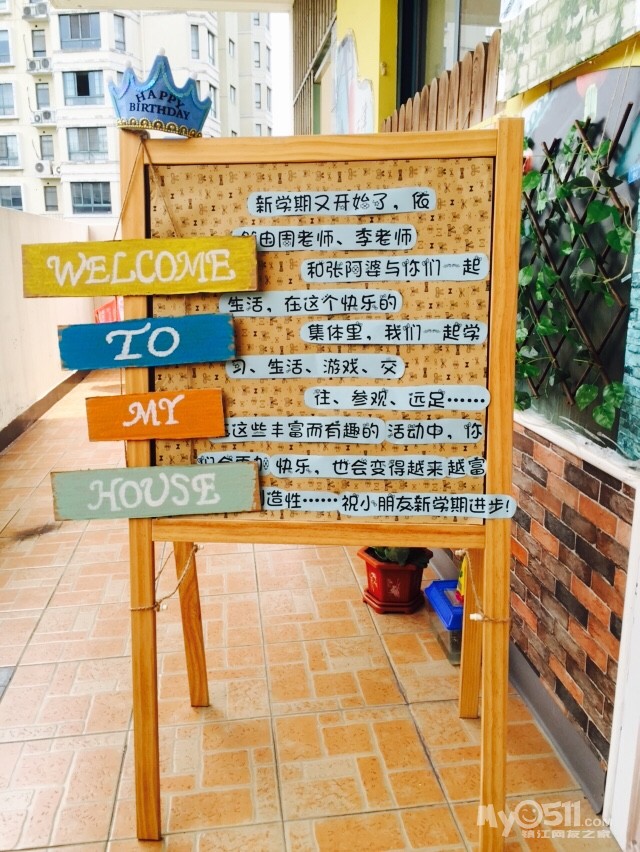 HAPPY
BIRTHDAY
WELCOME
TO
MY
HOUSE
新学期又开始了，依
由周老师、李老师
和张阿婆与你们一起
生活，在这个快乐的
集体里，我们一起学
习、生活、游戏、交
往、参观、远足……
这些丰富而有趣的活动中，你
们会更加快乐，也会变得越来越富
造性……祝小朋友新学期进步！
My0511.com
镇江网友之家